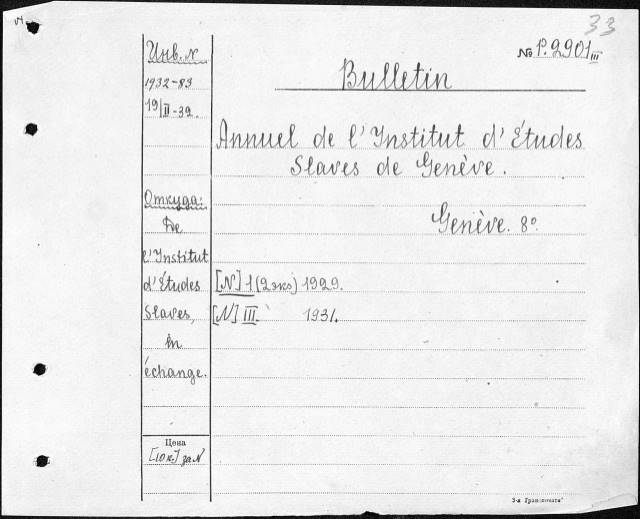 33
Инв. №
№ P. 2901 III
Bulletin
1932-83
19/II-32.
Annuel de l'Institut d'Études
Slaves de Genève.
Откуда:
De
l'Institut
d'Études
Slaves,
in
échange.
Genève. 8°.
[N] 1 (2 экз) 1929.
[N] III. 1931.
Цена
[10 к.] за N